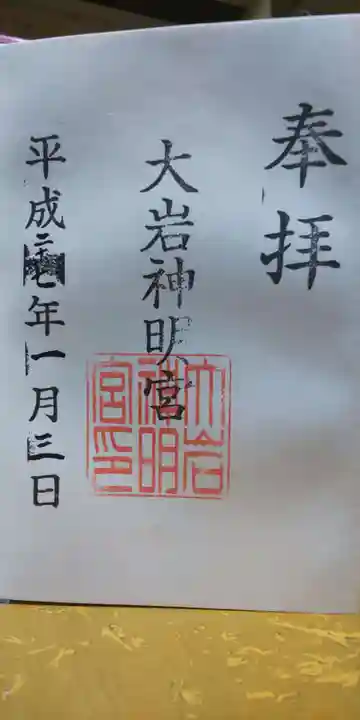 奉拝
大岩神明宮
大岩神明宮印
平成二七年一月三日